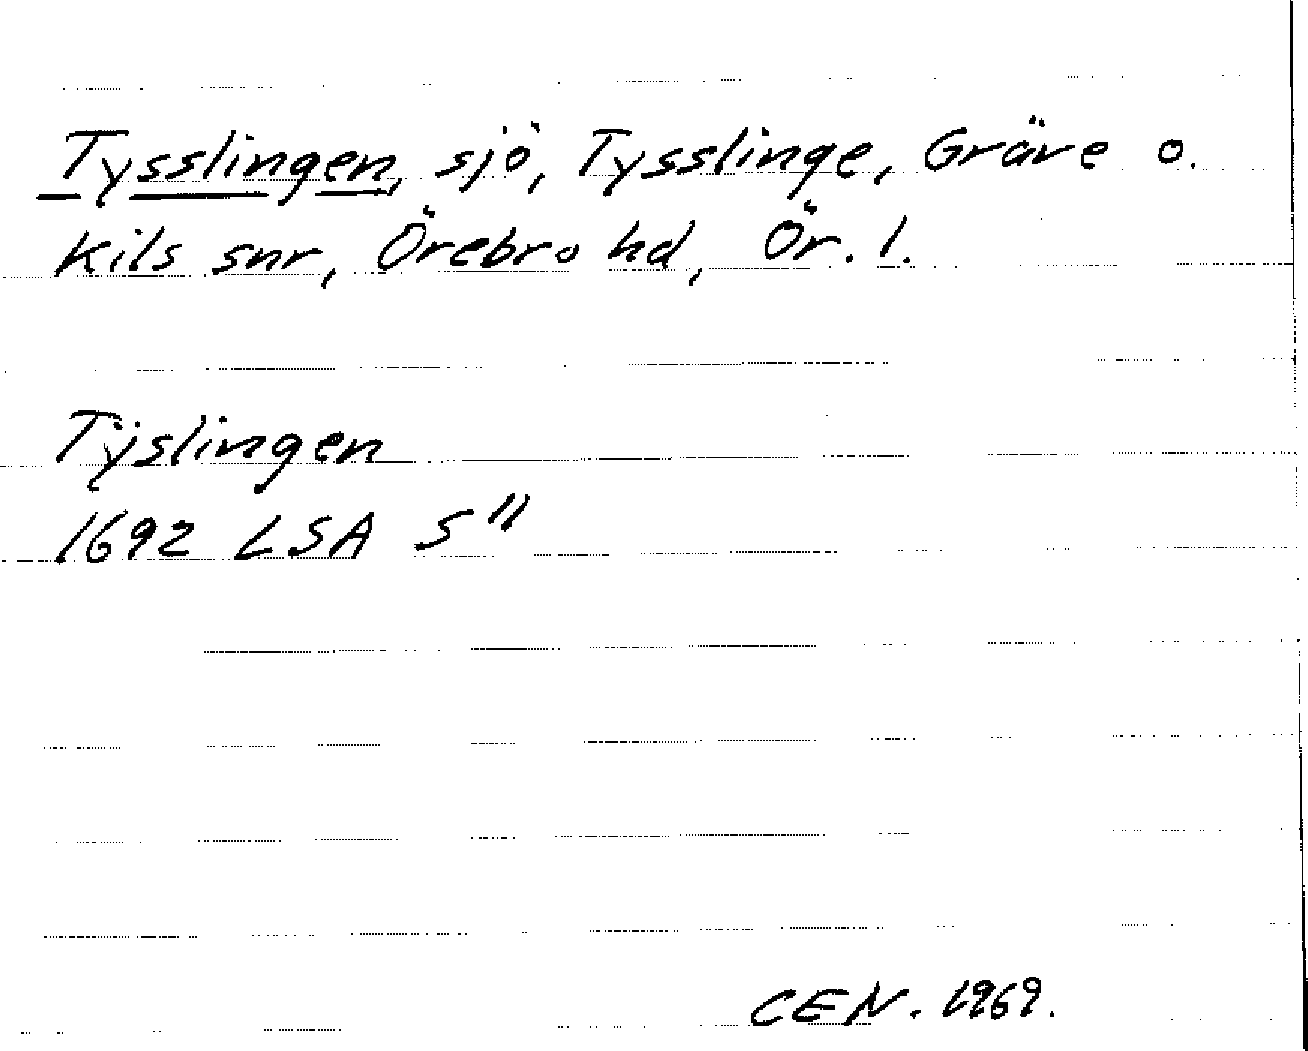 Tysslingen, sjö, Tysslinge, Gräve o.
Kils snr, Örebro hd, Ör. l.
Tÿslingen
1692 LSA S"
CEN. 1969.